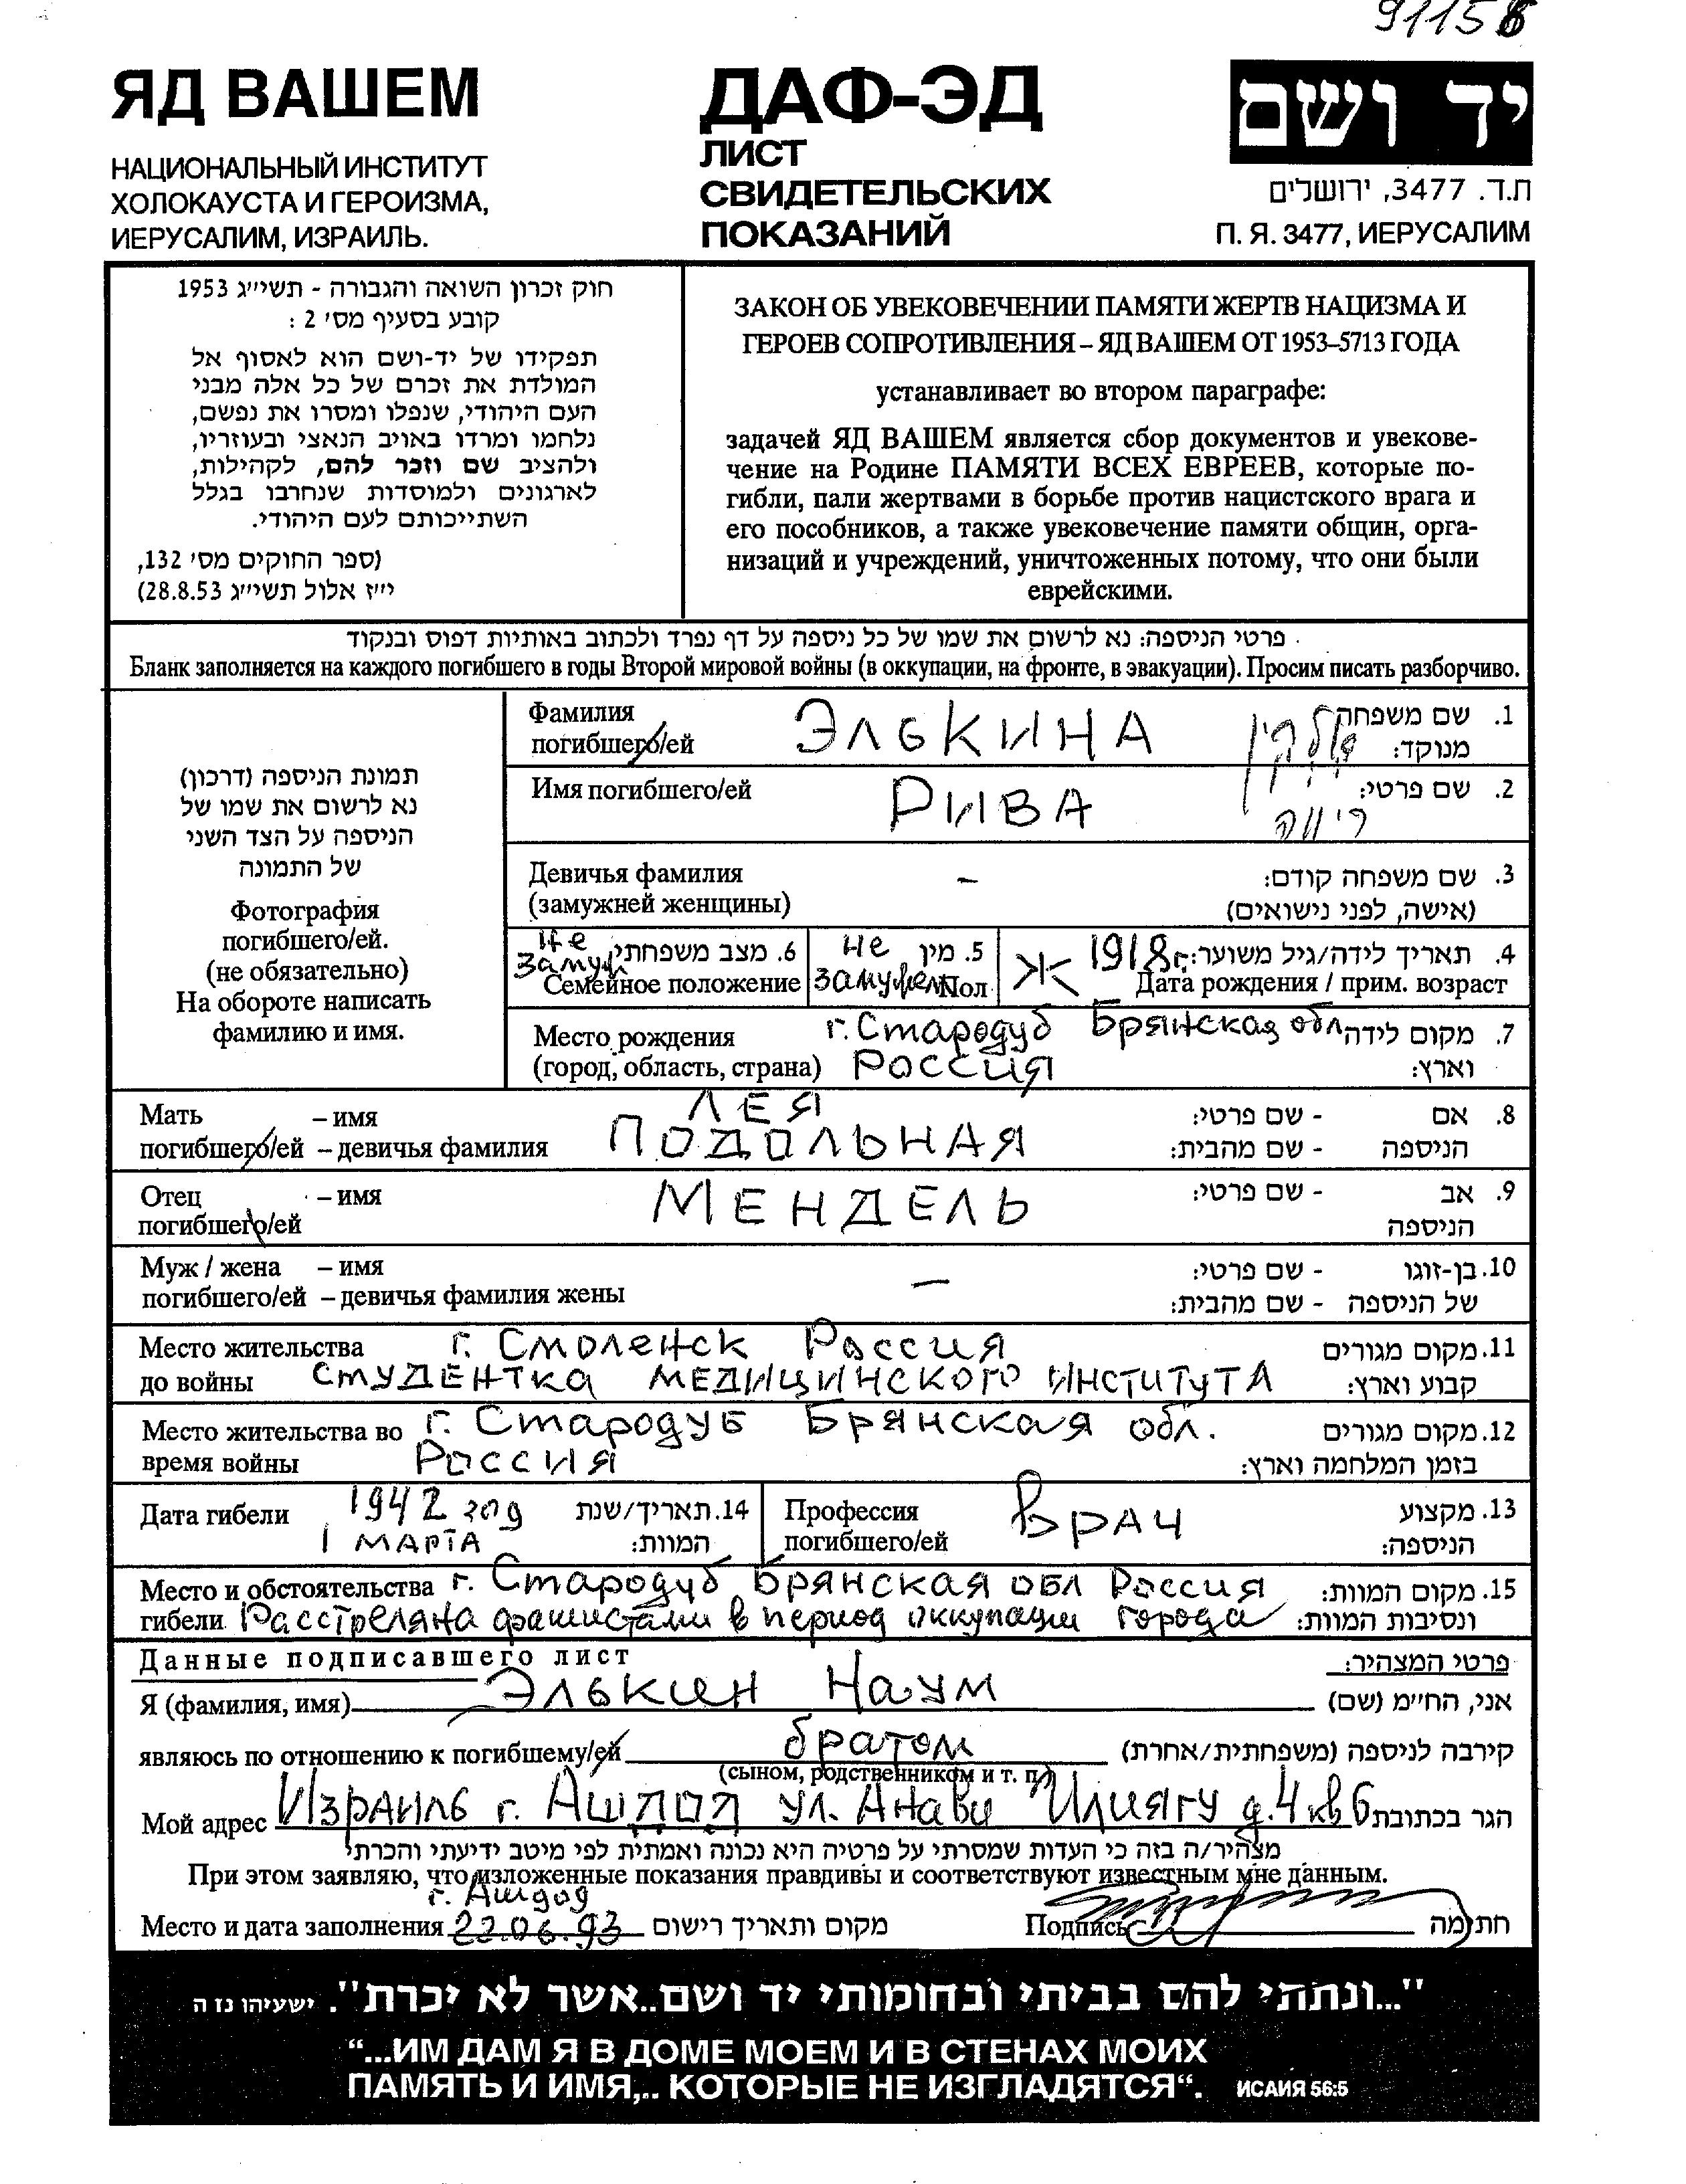 91158
ЯД ВАШЕМ
НАЦИОНАЛЬНЫЙ ИНСТИТУТ
ХОЛОКАУСТА И ГЕРОИЗМА,
ИЕРУСАЛИМ, ИЗРАИЛЬ.
ДАФ-ЭД
ЛИСТ
СВИДЕТЕЛЬСКИХ
ПОКАЗАНИЙ
יד ושם
ת.ד. 3477, ירושלים
П. Я. 3477, ИЕРУСАЛИМ
חוק זכרון השואה והגבורה - תשי״ג 1953
קובע בסעיף מס׳ 2 :
תפקידו של יד-ושם הוא לאסוף אל
המולדת את זכרם של כל אלה מבני
העם היהודי, שנפלו ומסרו את נפשם,
נלחמו ומרדו באויב הנאצי ובעוזריו,
ולהציב שם וזכר להם, לקהילות,
לארגונים ולמוסדות שנחרבו בגלל
השתייכותם לעם היהודי.
(ספר החוקים מס׳ 132,
י״ז אלול תשי״ג 28.8.53)
ЗАКОН ОБ УВЕКОВЕЧЕНИИ ПАМЯТИ ЖЕРТВ НАЦИЗМА И
ГЕРОЕВ СОПРОТИВЛЕНИЯ – ЯД ВАШЕМ ОТ 1953–5713 ГОДА
устанавливает во втором параграфе:
задачей ЯД ВАШЕМ является сбор документов и увекове-
чение на Родине ПАМЯТИ ВСЕХ ЕВРЕЕВ, которые по-
гибли, пали жертвами в борьбе против нацистского врага и
его пособников, а также увековечение памяти общин, орга-
низаций и учреждений, уничтоженных потому, что они были
еврейскими.
פרטי הניספה: נא לרשום את שמו של כל ניספה על דף נפרד ולכתוב באותיות דפוס ובנקוד
Бланк заполняется на каждого погибшего в годы Второй мировой войны (в оккупации, на фронте, в эвакуации). Просим писать разборчиво.
תמונת הניספה (דרכון)
נא לרשום את שמו של
הניספה על הצד השני
של התמונה
Фотография
погибшего/ей.
(не обязательно)
На обороте написать
фамилию и имя.
Фамилия ЭЛЬКИНА אלקין 1. שם משפחה
погибшего/ей מנוקד:
Имя погибшего/ей РИВА ריווה 2. שם פרטי:
Девичья фамилия – 3. שם משפחה קודם:
(замужней женщины) (אישה, לפני נישואים)
не 6. מצב משפחתי не 5. מין Ж 1918 г. 4. תאריך לידה/גיל משוער:
замуж Семейное положение замужем Пол Дата рождения / прим. возраст
Место рождения г. Стародуб Брянская обл 7. מקום לידה
(город, область, страна) Россия וארץ:
Мать – имя ЛЕЯ 8. אם - שם פרטי:
погибшего/ей – девичья фамилия ПОДОЛЬНАЯ הניספה - שם מהבית:
Отец – имя МЕНДЕЛЬ 9. אב - שם פרטי:
погибшего/ей הניספה
Муж / жена – имя – 10. בן-זוגו - שם פרטי:
погибшего/ей – девичья фамилия жены של הניספה - שם מהבית:
Место жительства г. Смоленск Россия 11. מקום מגורים
до войны СТУДЕНТКА МЕДИЦИНСКОГО ИНСТИТУТА קבוע וארץ:
Место жительства во г. Стародуб Брянская обл. 12. מקום מגורים
время войны Россия בזמן המלחמה וארץ:
Дата гибели 1942 год 14. תאריך/שנת
1 МАРТА המוות:
Профессия Врач 13. מקצוע
погибшего/ей הניספה:
Место и обстоятельства г. Стародуб Брянская обл Россия 15. מקום המוות:
гибели Расстреляна фашистами в период оккупации города ונסיבות המוות:
Данные подписавшего лист פרטי המצהיר:
Я (фамилия, имя) Элькин Наум אני, הח״מ (שם)
являюсь по отношению к погибшему/ей братом קירבה לניספה (משפחתית/אחרת)
(сыном, родственником и т. п.)
Мой адрес Израиль г. Ашдод ул. Анави Илиягу д. 4 кв 6 הגר בכתובת
מצהיר/ה בזה כי העדות שמסרתי על פרטיה היא נכונה ואמתית לפי מיטב ידיעתי והכרתי
При этом заявляю, что изложенные показания правдивы и соответствуют известным мне данным.
г. Ашдод
Место и дата заполнения 22.06.93 מקום ותאריך רישום Подпись חתימה
"...ונתתי להם בביתי ובחומותי יד ושם..אשר לא יכרת". ישעיהו נז ה
“...ИМ ДАМ Я В ДОМЕ МОЕМ И В СТЕНАХ МОИХ
ПАМЯТЬ И ИМЯ,.. КОТОРЫЕ НЕ ИЗГЛАДЯТСЯ“. ИСАИЯ 56:5